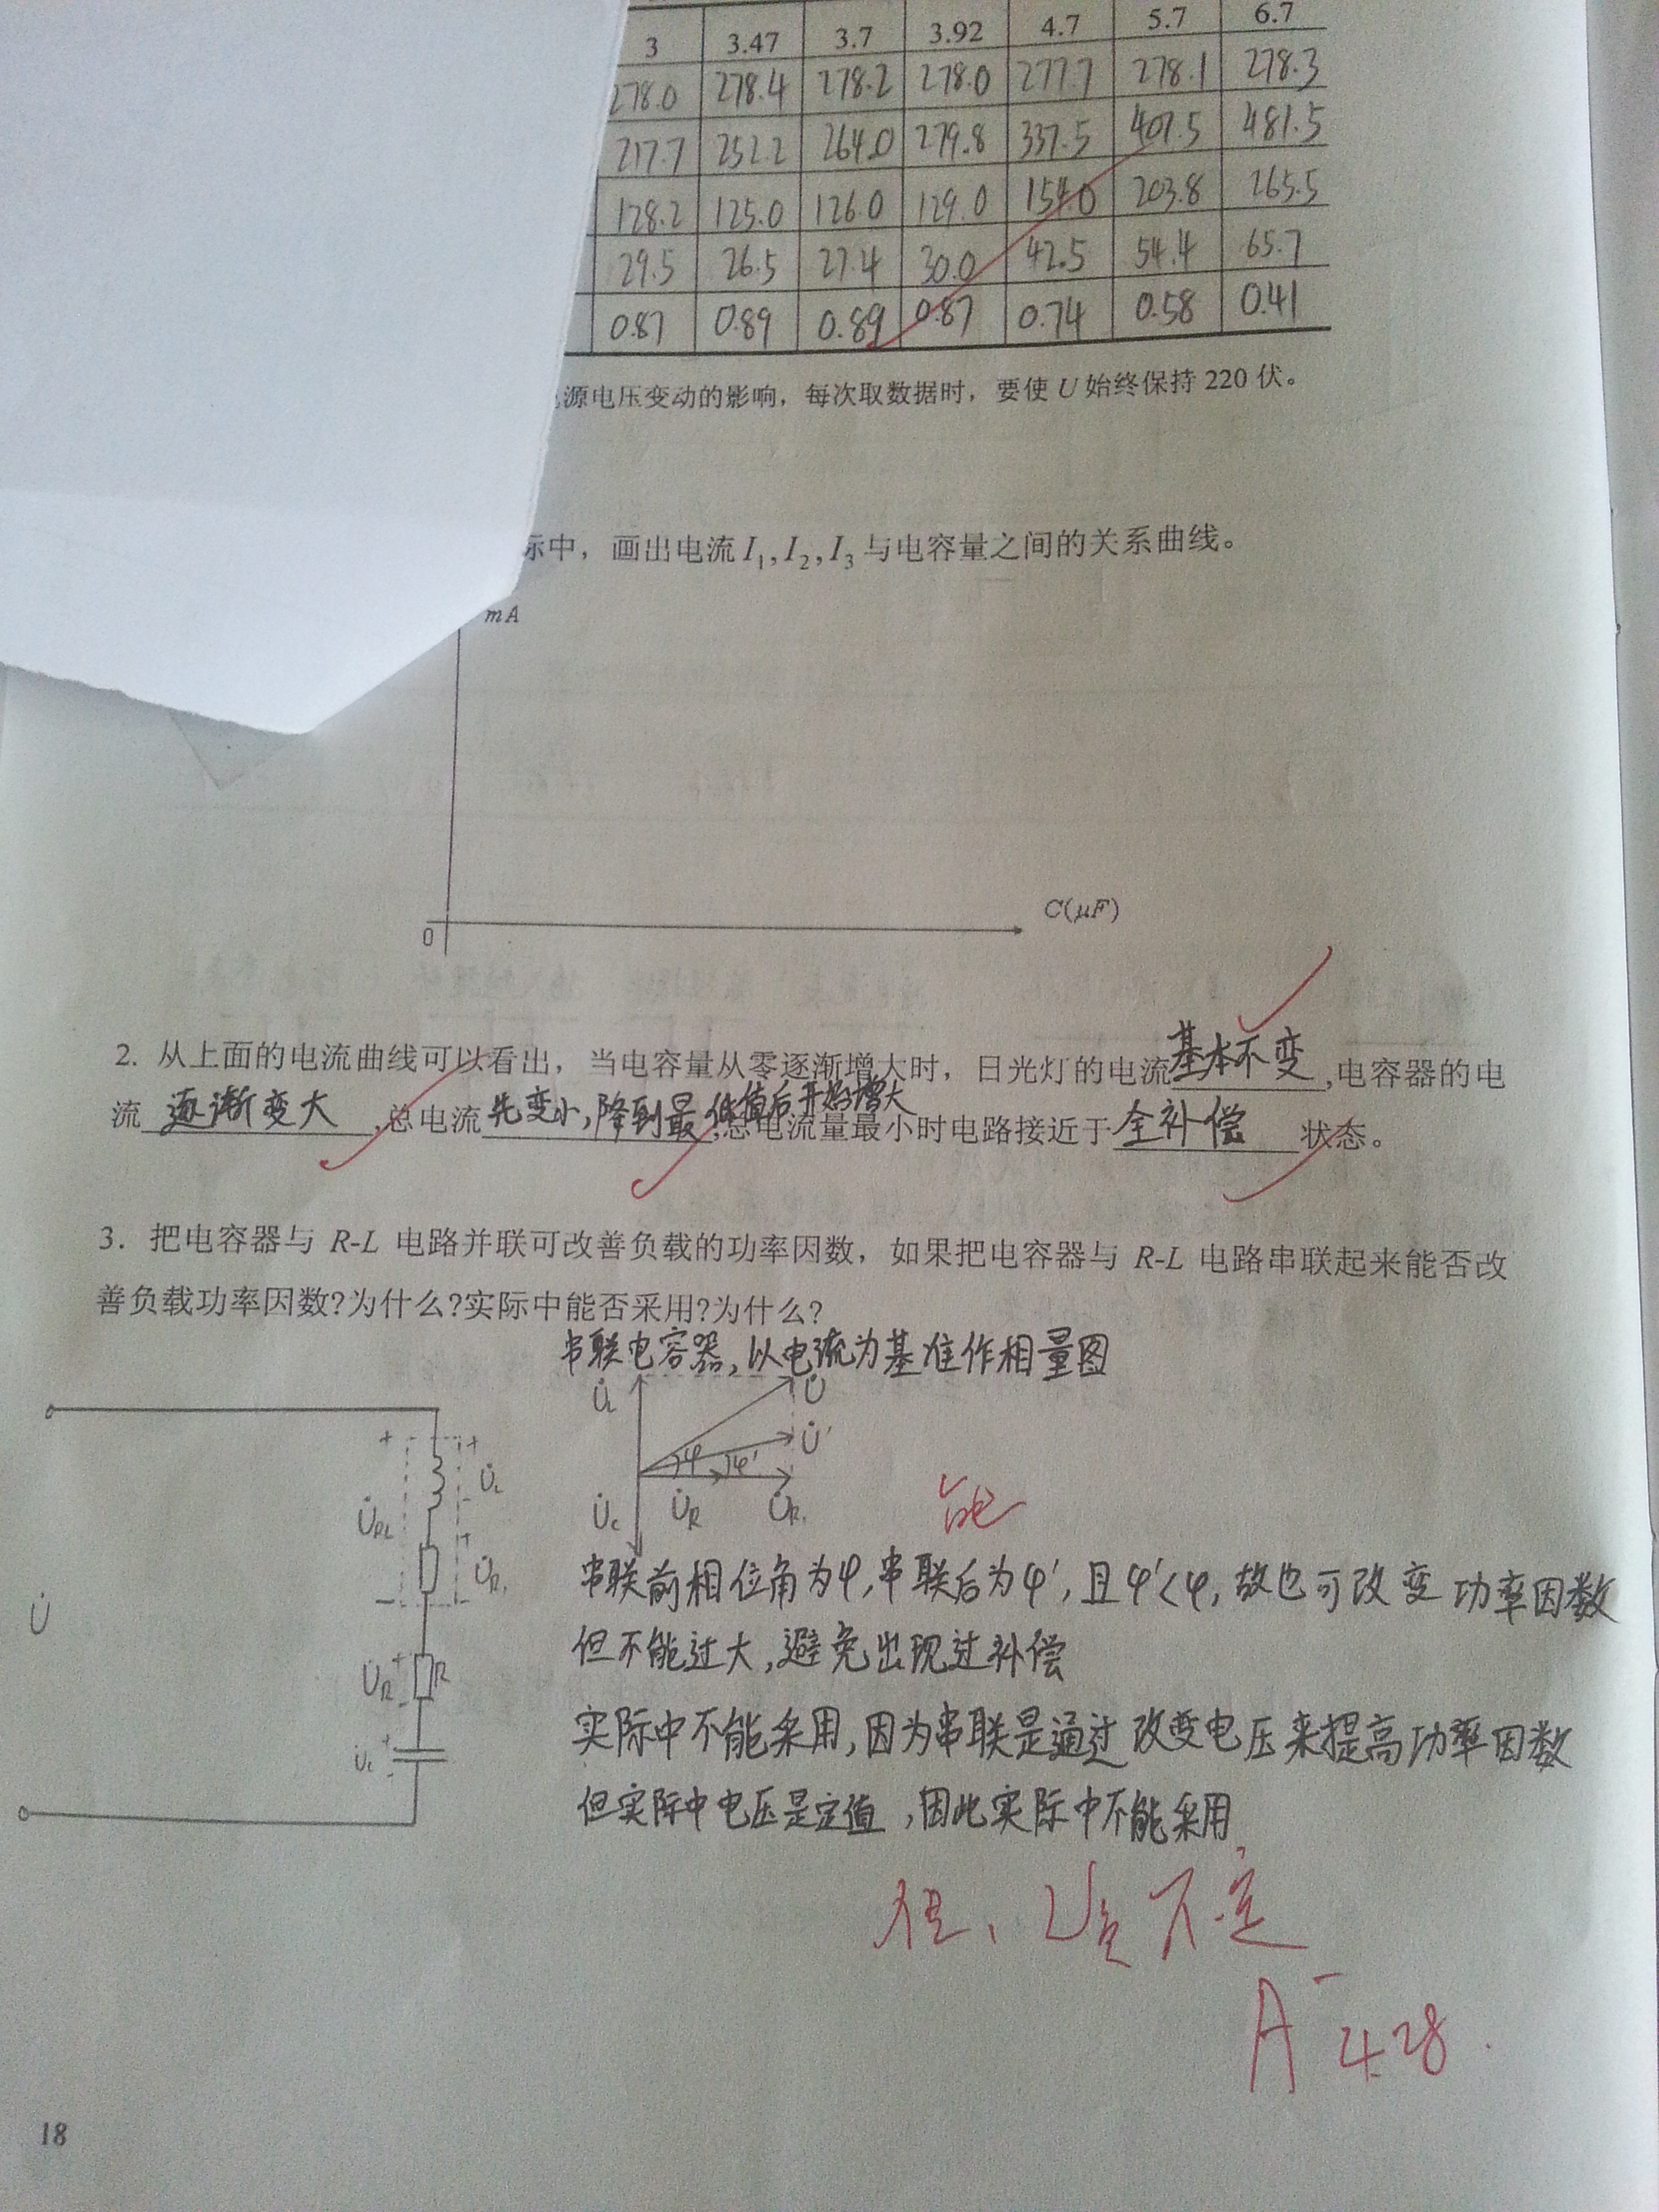 3 3.47 3.7 3.92 4.7 5.7 6.7
278.0 278.4 278.2 278.0 277.7 278.1 278.3
217.7 252.2 264.0 279.8 337.5 407.5 481.5
128.2 125.0 126.0 129.0 154.0 203.8 265.5
29.5 26.5 27.4 30.0 42.5 54.4 65.7
0.87 0.89 0.89 0.87 0.74 0.58 0.41
源电压变动的影响，每次取数据时，要使 U 始终保持 220 伏。
标中，画出电流 I₁, I₂, I₃ 与电容量之间的关系曲线。
mA
C(μF)
0
2. 从上面的电流曲线可以看出，当电容量从零逐渐增大时，日光灯的电流基本不变,电容器的电
流逐渐变大,总电流先变小,降到最低值后开始增大,总电流量最小时电路接近于全补偿状态。
3. 把电容器与 R-L 电路并联可改善负载的功率因数，如果把电容器与 R-L 电路串联起来能否改
善负载功率因数?为什么?实际中能否采用?为什么?
串联电容器,以电流为基准作相量图
U̇L U̇
U̇'
φ φ'
U̇c U̇R U̇R,
能
+ + U̇L
U̇RL
+ U̇R,
U̇
U̇R + R
U̇c +
串联前相位角为φ,串联后为φ',且φ'<φ,故也可改变功率因数
但不能过大,避免出现过补偿
实际中不能采用,因为串联是通过改变电压来提高功率因数
但实际中电压是定值,因此实际中不能采用,
但、U负不定
A⁻ 4.28.
18